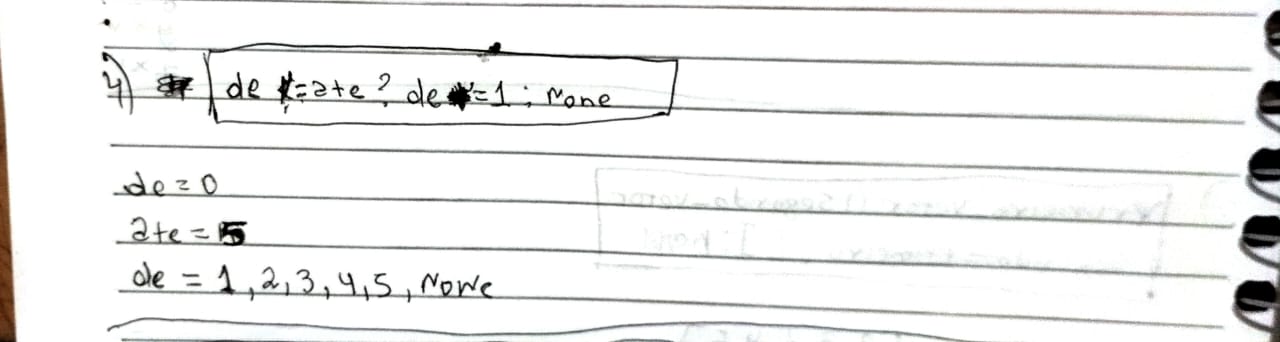 4) de != ate? de += 1 : None
de = 0
ate = 5
de = 1, 2, 3, 4, 5, None